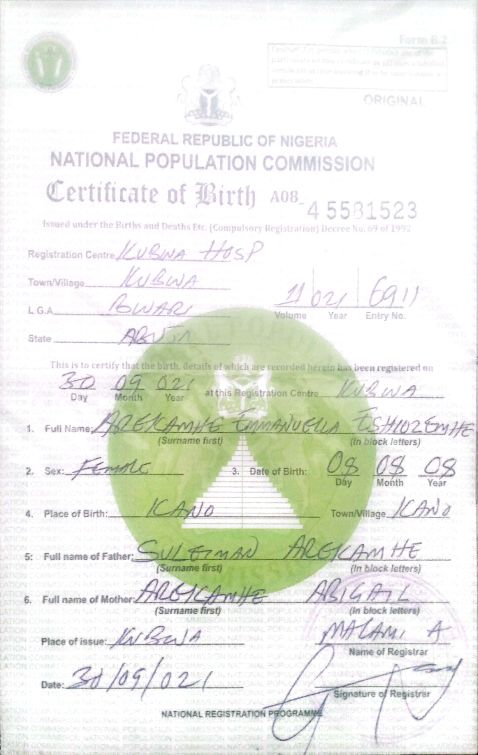 Form B.2
ORIGINAL
FEDERAL REPUBLIC OF NIGERIA
NATIONAL POPULATION COMMISSION
Certificate of Birth A08_ 45581523
Issued under the Births and Deaths Etc. (Compulsory Registration) Decree No. 69 of 1992
Registration Centre KUBWA HOSP
Town/Village KUBWA
L.G.A. BWARI
State ABUJA
11 021 6911
Volume Year Entry No.
This is to certify that the birth, details of which are recorded herein has been registered on
30 09 021 at this Registration Centre KUBWA
Day Month Year
1. Full Name: AREKAMHE EMMANUELLA
(Surname first) (In block letters)
2. Sex: FEMALE 3. Date of Birth: 08 08 08
Day Month Year
4. Place of Birth: KANO Town/Village KANO
5: Full name of Father: SULEIMAN AREKAMHE
(Surname first) (In block letters)
6. Full name of Mother: AREKAMHE ABIGAIL
(Surname first) (In block letters)
Place of issue: KUBWA MALAMI A
Name of Registrar
Date: 30/09/021
Signature of Registrar
NATIONAL REGISTRATION PROGRAMME